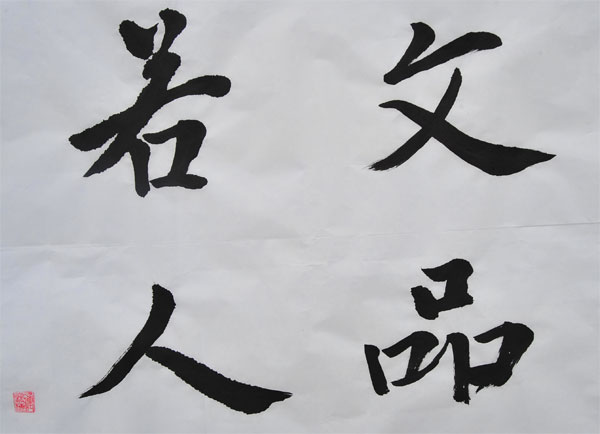 文品
若人